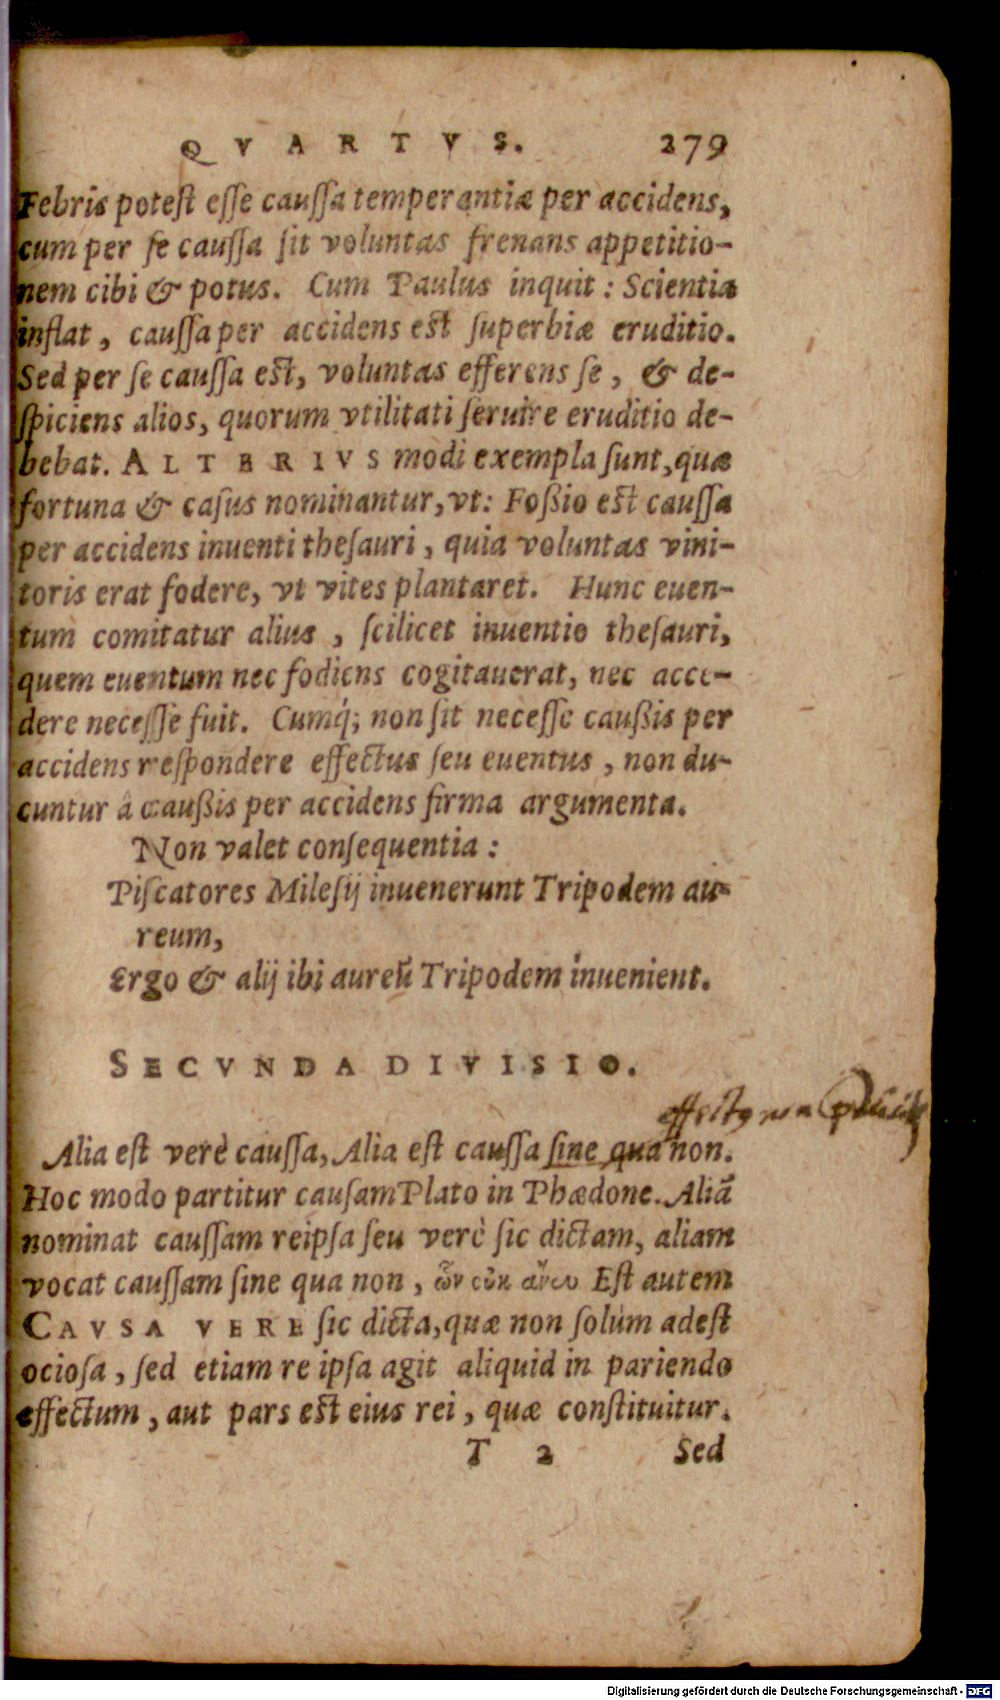 QVARTVS. 279
Febris potest esse caussa temperantiæ per accidens,
cum per se caussa sit voluntas frenans appetitio-
nem cibi & potus. Cum Paulus inquit : Scientia
inflat, caussa per accidens est superbiæ eruditio.
Sed per se caussa est, voluntas efferens se, & de-
spiciens alios, quorum vtilitati seruire eruditio de-
bebat. ALTERIVS modi exempla sunt, quæ
fortuna & casus nominantur, vt: Foßio est caussa
per accidens inuenti thesauri, quia voluntas vini-
toris erat fodere, vt vites plantaret. Hunc euen-
tum comitatur alius, scilicet inuentio thesauri,
quem euentum nec fodiens cogitauerat, nec acce-
dere necesse fuit. Cumq́; non sit necesse caußis per
accidens respondere effectus seu euentus, non du-
cuntur â caußis per accidens firma argumenta.
Non valet consequentia :
Piscatores Milesij inuenerunt Tripodem au-
reum,
Ergo & alij ibi aureũ Tripodem inuenient.
SECVNDA DIVISIO.
effectus non
Alia est verè caussa, Alia est caussa sine qua non.
Hoc modo partitur causam Plato in Phædone. Aliã
nominat caussam reipsa seu verè sic dictam, aliam
vocat caussam sine qua non, ὧν οὐκ ἄνευ Est autem
CAVSA VERE sic dicta, quæ non solùm adest
ociosa, sed etiam re ipsa agit aliquid in pariendo
effectum, aut pars est eius rei, quæ constituitur.
T 2 Sed
Digitalisierung gefördert durch die Deutsche Forschungsgemeinschaft - DFG